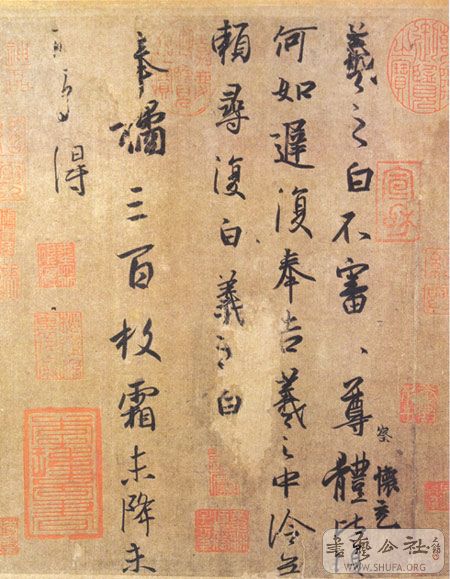 羲之白不審、尊體比
察 懷充
何如遲復奉告羲之中冷無
賴尋復白羲之白
奉橘三百枚霜未降未
可多得
書藝公社
WWW.SHUFA.ORG